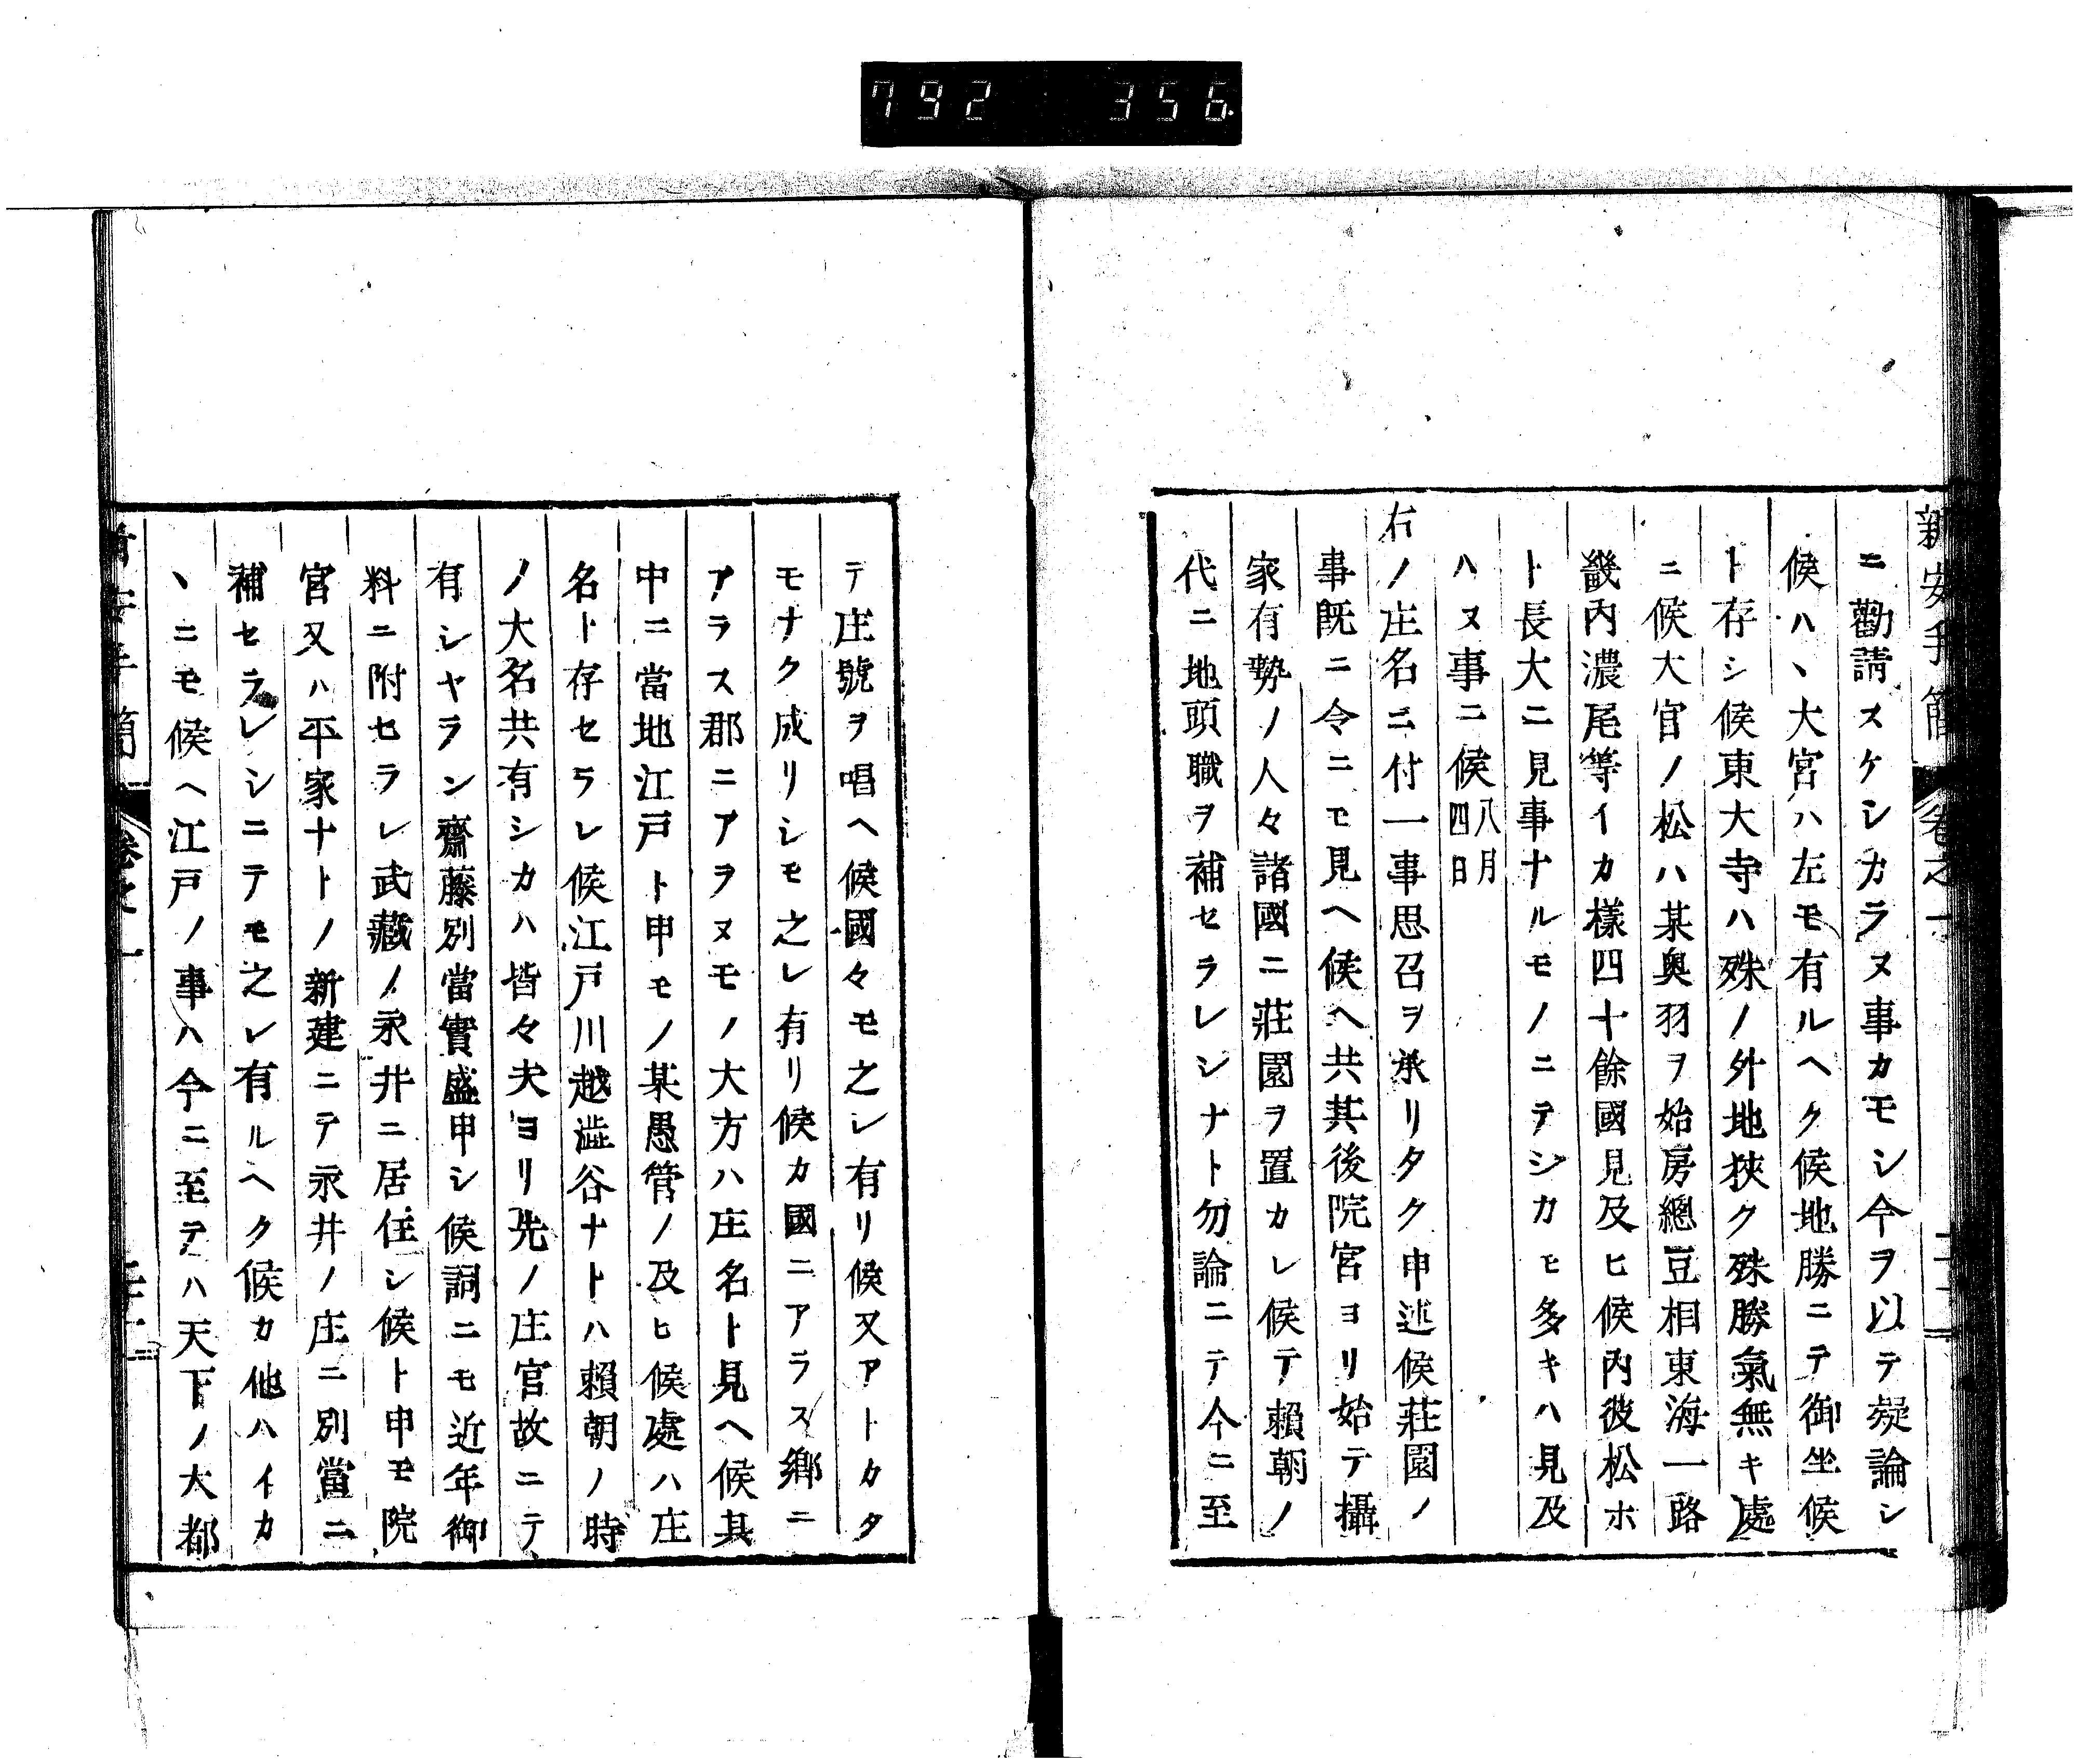 792 356
新安手簡 卷之一
ニ勸請スケシカラヌ事カモシ今ヲ以テ疑論シ
候ハヽ大宮ハ左モ有ルヘク候地勝ニテ御坐候
ト存シ候東大寺ハ殊ノ外地狹ク殊勝氣無キ處
ニ候大官ノ松ハ某奥羽ヲ始房總豆相東海一路
畿内濃尾等イカ樣四十餘國見及ヒ候内彼松ホ
ト長大ニ見事ナルモノニテシカヒ多キハ見及
ハヌ事ニ候八月四日
右ノ庄名ニ付一事思召ヲ承リタク申述候莊園ノ
事既ニ令ニモ見ヘ候ヘ共其後院宮ヨリ始テ攝
家有勢ノ人々諸國ニ莊園ヲ置カレ候テ賴朝ノ
代ニ地頭職ヲ補セラレシナト勿論ニテ今ニ至
テ庄號ヲ唱ヘ候國々モ之レ有リ候又アトカタ
モナク成リシモ之レ有リ候カ國ニアラス鄉ニ
アラス郡ニアヲヌモノ大方ハ庄名ト見ヘ候其
中ニ當地江戸ト申モノ某愚管ノ及ヒ候處ハ庄
名ト存セラレ候江戸川越澁谷ナトハ賴朝ノ時
ノ大名共有シカハ皆々夫ヨリ先ノ庄官故ニテ
有シヤラン齋藤別當實盛申シ候詞ニモ近年御
料ニ附セラレ武藏ノ永井ニ居住シ候ト申モ院
宮又ハ平家ナトノ新建ニテ永井ノ庄ニ別當ニ
補セラレシニテモ之レ有ルヘク候カ他ハイカ
ヽニモ候ヘ江戸ノ事ハ今ニ至テハ天下ノ大都
新安手簡 卷之一